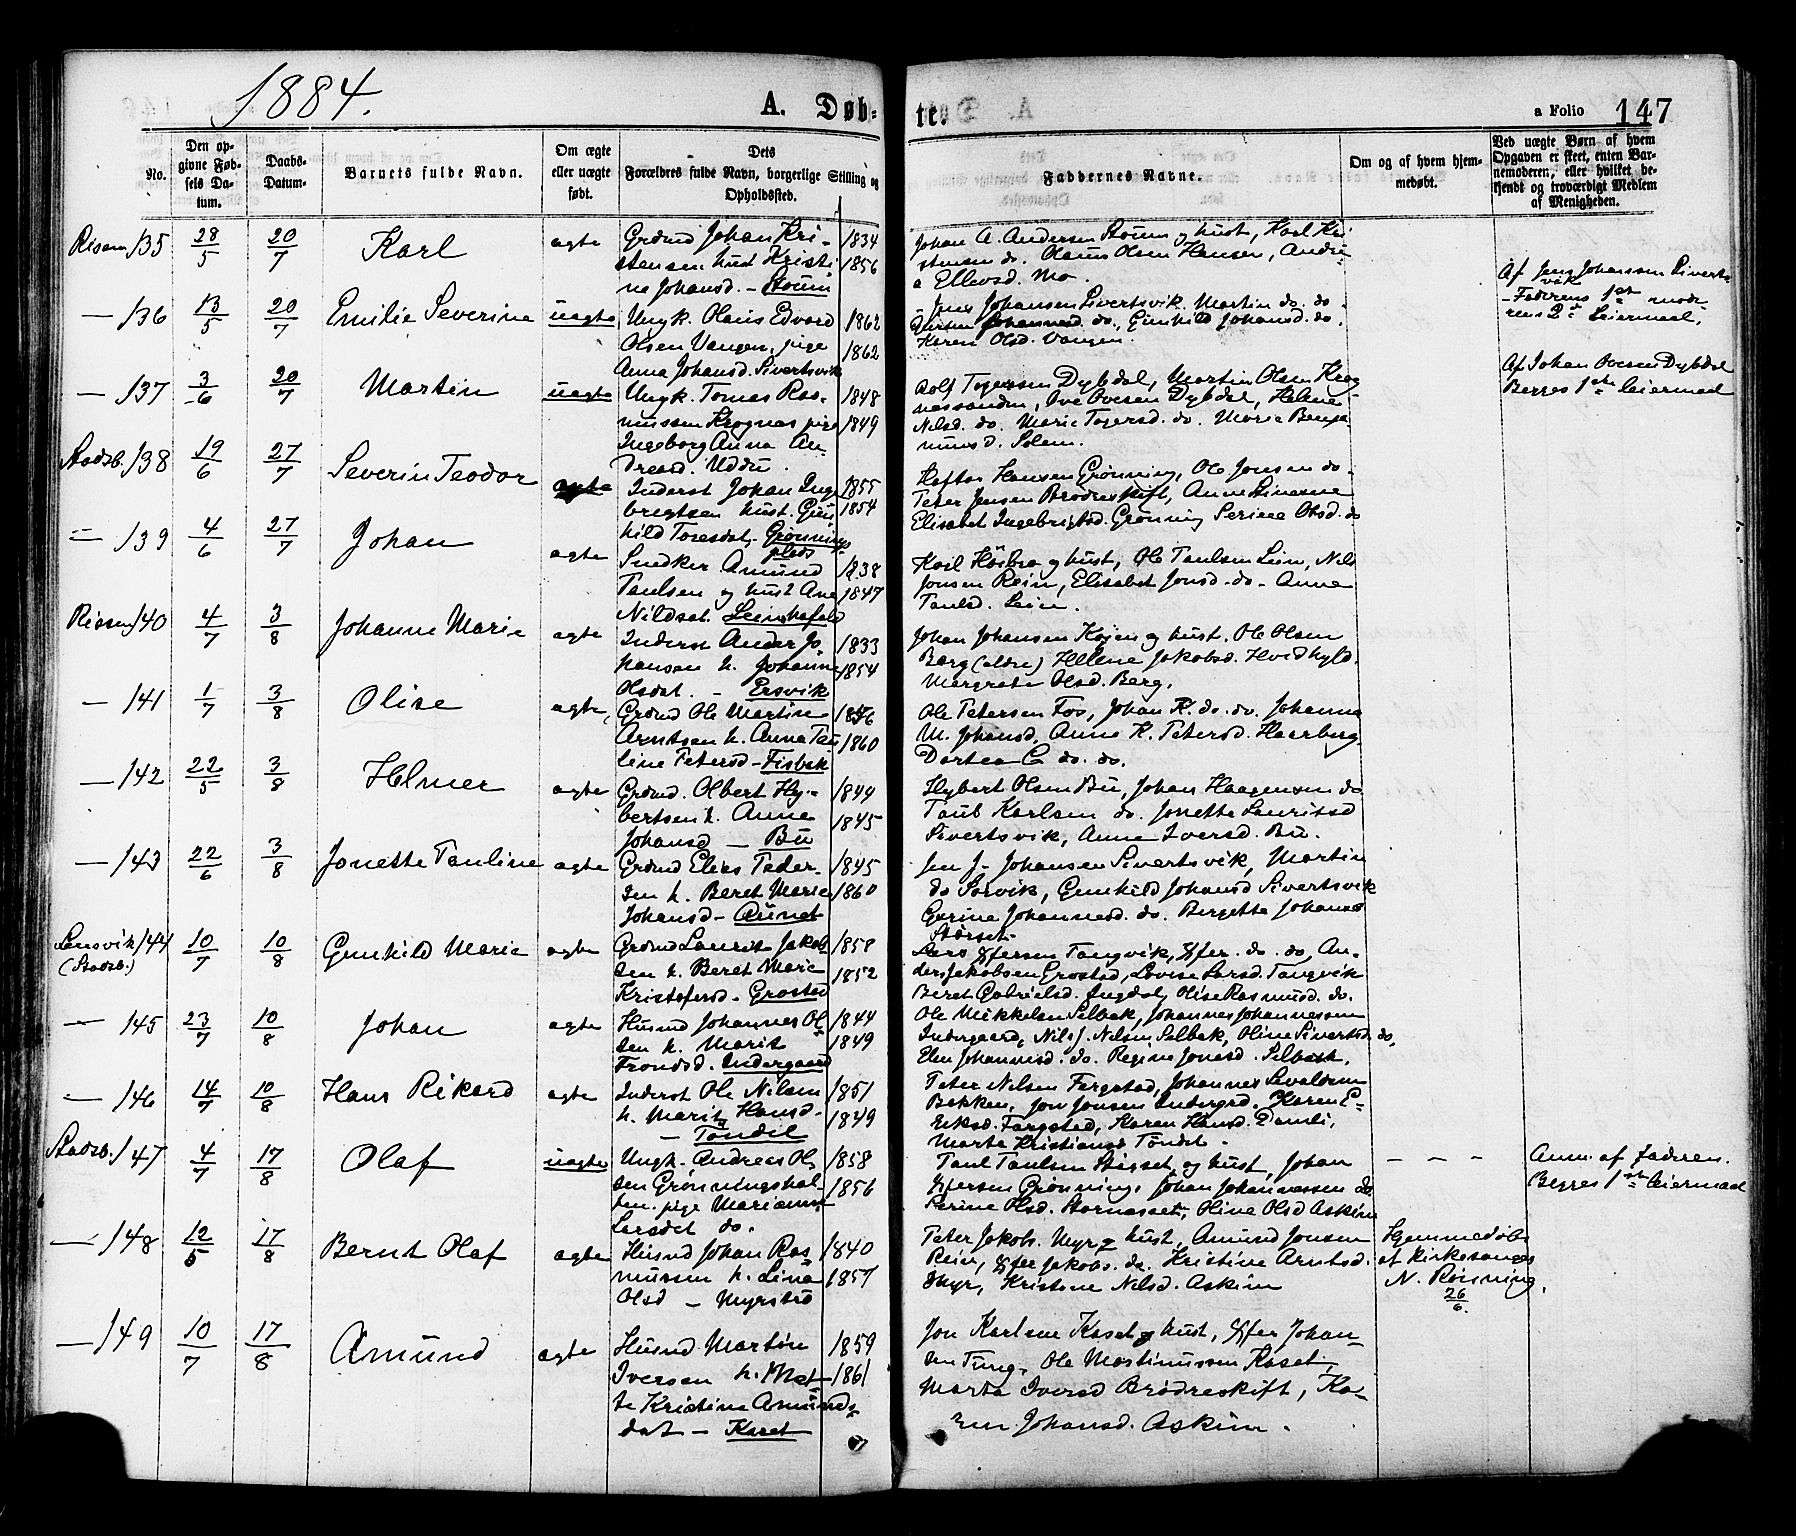 1884.
A. Døb-
te.
a Folio 147
No.
Den op-
givne Fød-
sels Da-
tum.
Daabs-
Datum.
Barnets fulde Navn.
Om ægte
eller uægte
født.
Dets
Forældres fulde Navn, borgerlige Stilling og
Opholdssted.
Faddernes Navne.
Om og af hvem hjem-
medøbt.
Ved uægte Børn af hvem
Opgaven er skeet, enten Bar-
nemoderen, eller hvilket be-
kjendt og troværdigt Medlem
af Menigheden.
Rissen 135 28/5 20/7 Karl ægte
Grdmd Johan Kri- 1834
stensen hust Kristi 1856
ne Johansd. - Stoum
Johan A. Andersen Stoum og hust, Karl Kri
stensen do. Olaus Olsen Hansen, Andri-
a Ellevsd. Mo.
— 136 13/5 20/7 Emilie Severine uægte
Ungk. Olaus Edvard 1862
Olsen Vangen, pige 1862
Anna Johansd. Sivertsvik
Jens Johansen Sivertsvik. Martin do. do.
Johannesd. do., Gunhild Johansd. do.
Karen Olsd. Vangen.
Af Jens Johansen Siverts-
vik
- Faderens 1ste mode
rens 2d Leiermaal.
— 137 3/6 20/7 Martin uægte
Ungk. Tomas Ras- 1848
mussen Krognæs pige 1849
Ingeborg Anna An
dreasd. Uddu.
Rolf Togersen Dybdal, Martin Olsen Krog
næssanden, Ove Ovesen Dybdal, Helene
Nilsd. do. Marie Togersd. do. Marie Benja
minsd. Solem.
Af Johan Ovesen Dybdal
Begges 1ste Leiermaal
Stadsb. 138 19/6 27/7 Severin Teodor ægte
Inderst Johan Inge 1855
brigtsen hust. Gun 1854
hild Toresdat. Grønnings
plads
Haftor Hansen Grønning, Ole Jonsen do.
Peter Jensen Brødreskift, Anne
Elisabet Ingebrigtsd. Grønning Serine Olsd. do
= 139 4/6 27/7 Johan ægte
Snedker Amund 1838
Paulsen og hust Ane 1847
Nilsdat. Leinshafald
Karl Høibro og hust, Ole Paulsen Lein, Nils
Jonsen Rein, Elisabet Jonsd. do - Anne
Paulsd. Lein.
Rissen 140 4/7 3/8 Johanne Marie ægte
Inderst Ander Jo 1833
hansen h. Johanne 1854
Olsdat. - Ersvik
Johan Johansen Køjen og hust. Ole Olsen
Berg (ældre) Helene Jakobsd. Hvidhyld.
Margrete Olsd. Berg.
— 141 1/7 3/8 Olise ægte,
Grdmd Ole Martin 1856
Arntsen h. Anna Pau 1860
line Petersd - Fisbek
Ole Petersen Fos, Johan K. do. do. Johanna
M. Johansd. Anne K. Petersd. Haarberg.
Dortea C do. do.
— 142 22/5 3/8 Helmer ægte
Grdmd. Olbert Hy- 1844
bertsen h. Anne 1845
Johansd — Bu
Hybert Olsen Bu, Johan Haagensen do
Paul Karlsen do. Jonetta Lauritsd
Sivertsvik, Anne Iversd. Bu.
— 143 22/6 3/8 Jonette Pauline ægte
Grdmd Elias Peder- 1845
sen h. Beret Marie 1860
Johansd - Aunet
Jen J. Johansen Sivertsvik, Martin
do Sørvik, Gunhild Johansd Sivertsvik
Gurine Johannesd. do. Bergette Johans
Størset.
Lensvik 144 10/7 10/8 Gunhild Marie ægte
(Stadsb.)
Grdmd Laurits Jakob 1858
sen h. Beret Marie 1852
Kristofersd - Grøstad
Lars Effersen Tangvik, Effer. do. do, An-
ders Jakobsen Grøstad, Lovise Larsd. Tangvik
Beret Gabrielsd. Ingdal, Olise Rasmusd. do.
— 145 23/7 10/8 Johan ægte
Husmd Johannes Ol 1844
sen h. Marit 1849
Trondsd. Indergaard
Ole Mikkelsen Selbæk, Johannes Johannessen
Indergaard, Nils J. Nilsen Selbæk, Oline Sivertsd. do,
Elen Johannesd. do. Regine Jonasd. Selbæk.
— 146 14/7 10/8 Hans Rikard ægte
Inderst Ole Nilsen 1851
h. Marit Hansd. 1849
— Tøndel
Peter Nilsen Fergstad, Johannes Sevaldsen
Bakken, Jon Jonsen Indergrd. Karen E-
riksd. Fargstad, Karen Hansd. Damli,
Marta Kristiansd Tøndel.
Stadsb. 147 4/7 17/8 Olaf uægte
Ungk. Andreas Ol 1858
sen Grønningshal- 1856
sen. pige Marianne
Larsdat do.
Paul Paulsen Skigset, og hust, Johan
Effersen Grønning, Johan Johannessen do.
Perine Olsd. Stornesset, Oline Olsd Askim
— — —
Anm. af Faderen.
Begges 1ste Leiermaal
— 148 12/5 17/8 Bernt Olaf ægte
Husmd Johan Ras 1840
mussen h. Lina 1857
Olsd — Myrsted
Peter Jakobs. Myr og hust, Amund Jonsen
Rein, Effer Jakobs. do. Kristine Arntsd.
Myr, Kristine Nilsd. Askim
Hjemmedøbt
af Kirkesanger
N. Rønning,
26/6.
— 149 10/7 17/8 Amund ægte
Husmd Martin 1859
Iversen h. Met- 1861
te Kristine Amunds
dat — Kaset
Jon Karlsen Kaset og hust, Effer Johan
sen Tung, Ole Martinussen Kaset,
Marta Iversd Brødreskift, Ka-
ren Johansd. Askim.